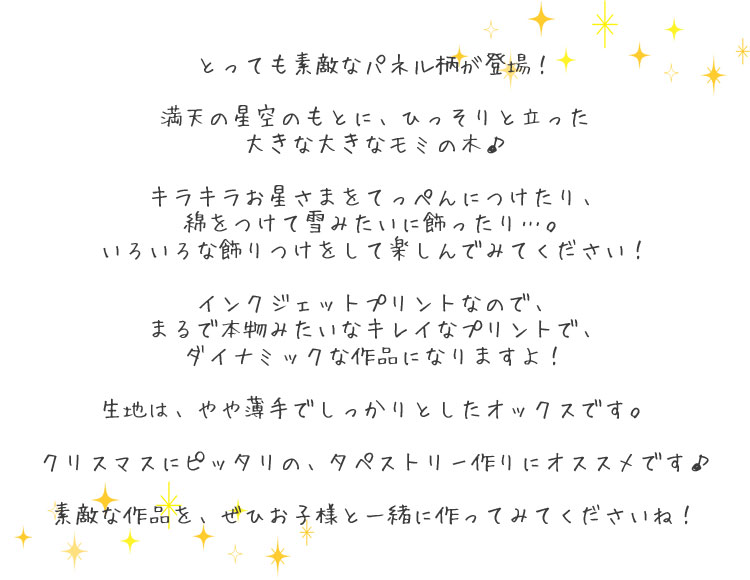 とっても素敵なパネル柄が登場！
満天の星空のもとに、ひっそりと立った
大きな大きなモミの木♪
キラキラお星さまをてっぺんにつけたり、
綿をつけて雪みたいに飾ったり…。
いろいろな飾りつけをして楽しんでみてください！
インクジェットプリントなので、
まるで本物みたいなキレイなプリントで、
ダイナミックな作品になりますよ！
生地は、やや薄手でしっかりとしたオックスです。
クリスマスにピッタリの、タペストリー作りにオススメです♪
素敵な作品を、ぜひお子様と一緒に作ってみてくださいね！